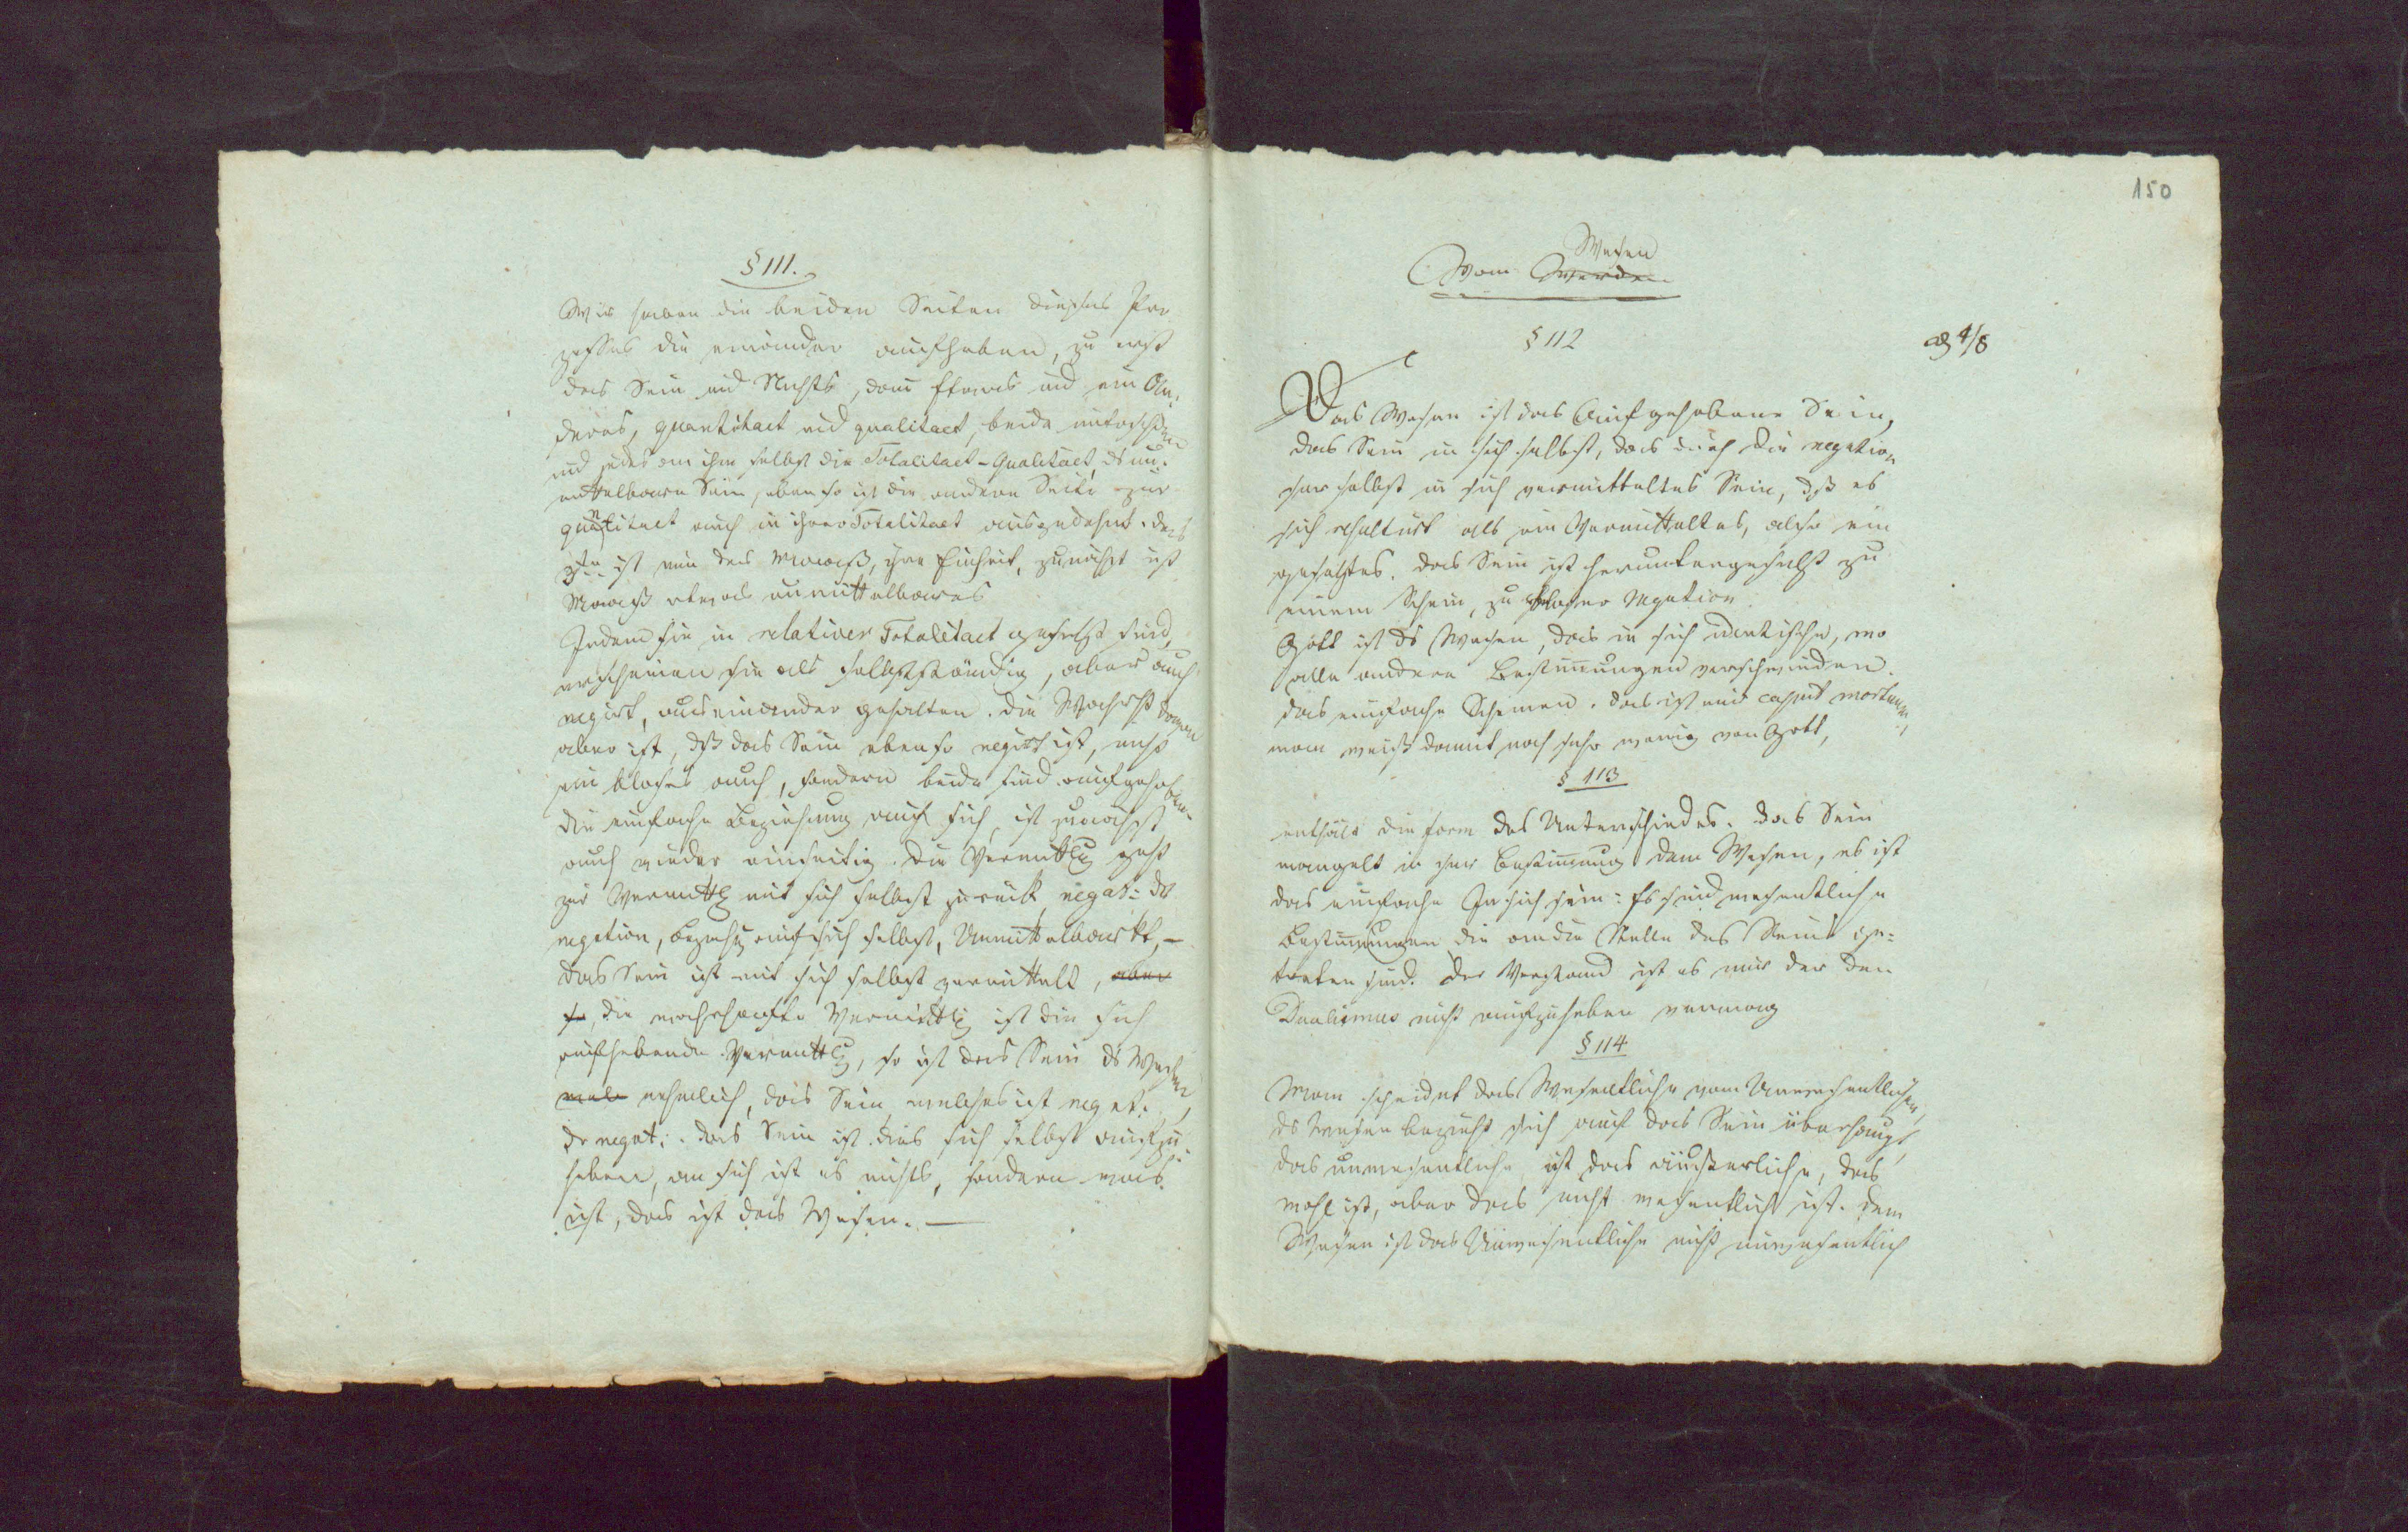 § 111.
Wir haben die beiden Seiten dieses Pro
zesses die einander aufheben, zu erst
das Sein und Nichts, dann Etwas und ein An-
deres, quantitaet und qualitaet, beide
und jedes an ihm selbst die Totalitaet - Qualitaet, ds un-
mittelbare Sein, eben so ist die andere Seite zur
quantitaet auch in ihrer Totalitaet ausgedehnt. das
3te ist nun das Maaß, ihre Einheit, zunächst ist
Maaß etwas unmittelbares
Indem sie in relativer Totalitaet gesetzt sind,
erscheinen sie als selbstständig, aber auch
negirt, auseinander gehalten. die Wahrht davon
aber ist, dß das Sein ebenso negirt ist, nicht
ein bloses auch, sondern beide sind aufgehoben.
die einfache Beziehung auf sich, ist zunächst
auch wieder einseitig. Die Vermittlg geht
zur Vermittlg mit sich selbst zurück negat: der
negation, Beziehg auf sich selbst, Unmittelbarkt, –
das Sein ist mit sich selbst vermittelt, aber
so, die wahrhafte Vermittlg ist die sich
aufhebende Vermittlg, so ist das Sein ds Wesen,
nehmlich, das Sein, welches ist negat:
dr negat:. das Sein ist dies sich selbst aufzu-
heben, an sich ist es nichts, sondern was
ist, das ist das Wesen. –
150
Wesen
Vom Werden
§ 112
4/8
Das Wesen ist das Aufgehobene Sein,
das Sein in sich selbst, das durch die negation
sr selbst in sich vermitteltes Sein, dß es
sich erhaltend als ein Vermitteltes, also ein
gesetztes. das Sein ist heruntergesetzt zu
einem Schein, zu bloser Negation.
Gott ist ds Wesen, das in sich identische, wo
alle andern Bestimmungen verschwinden.
das einfache Scheinen. das ist nur caput mortuum,
man weiß damit noch sehr wenig von Gott,
§ 113
enthält die Form des Unterschiedes. das Sein
mangelt in sr Bestimmung dem Wesen, es ist
das einfache In sich sein: Es sind wesentliche
Bestimmungen die an die Stelle des Seins ge-
treten sind. der Verstand ist es nur der den
Dualismus nicht aufzuheben vermag
§ 114
Man scheidet das Wesentliche vom Unwesentlichen,
ds Wesen bezieht sich auf das Sein überhaupt,
das unwesentliche ist das äusserliche, das
wohl ist, aber das nicht wesentlich ist. dem
Wesen ist das Unwesentliche nicht unwesentlich